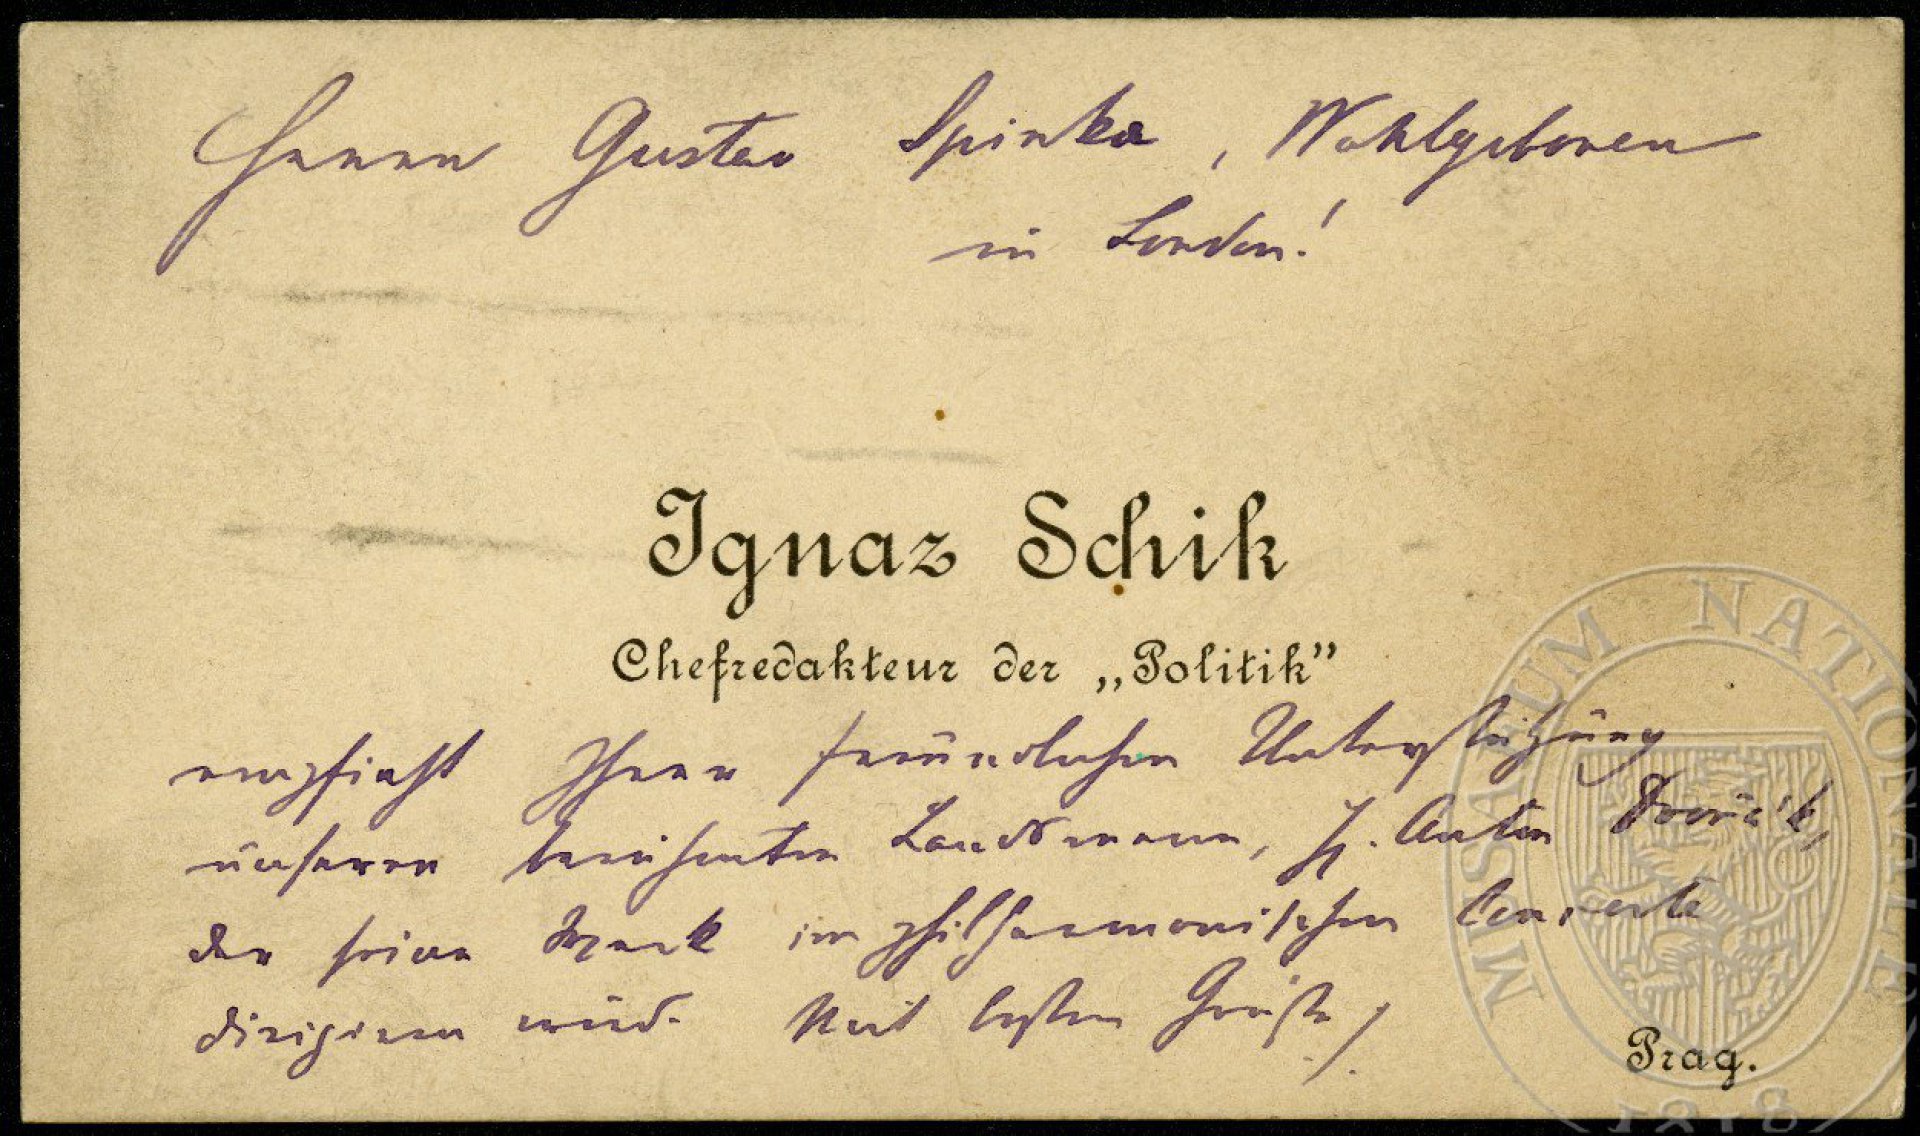 Herrn Gustav Spinka, Wohlgeboren
in London!
Ignaz Schik
Chefredakteur der „Politik”
empfiehlt Ihrer freundlichen Unterstützung
unseren berühmten Landsmann, H. Anton Dvořák,
der seine Werk im philharmonischen Concerte
dirigiren wird. Mit besten Grüße
Prag.
MUSAEUM NATIONALE
1818